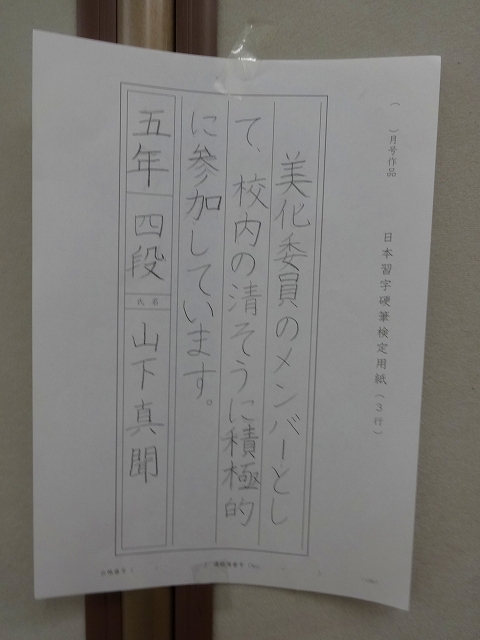 （　　）月号作品
日本習字硬筆検定用紙（３行）
美化委員のメンバーとし
て、校内の清そうに積極的
に参加しています。
五年 四段 氏名 山下真聞